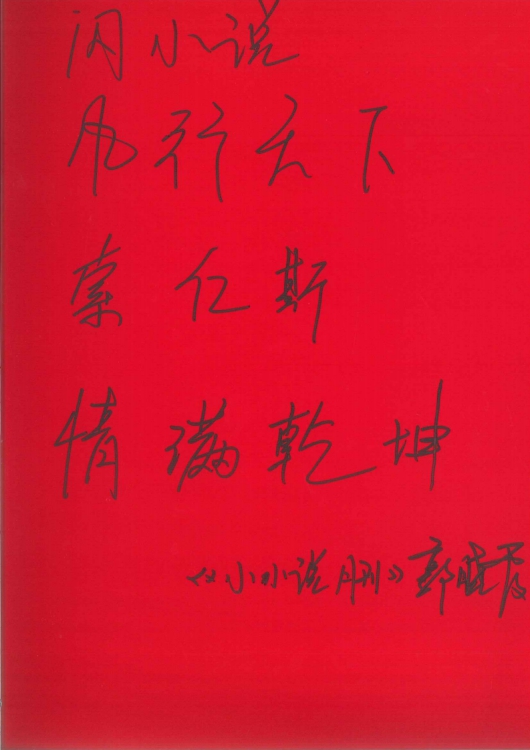 闪小说
风行天下
索仁斯
情满乾坤
《小小说月刊》郭晓霞